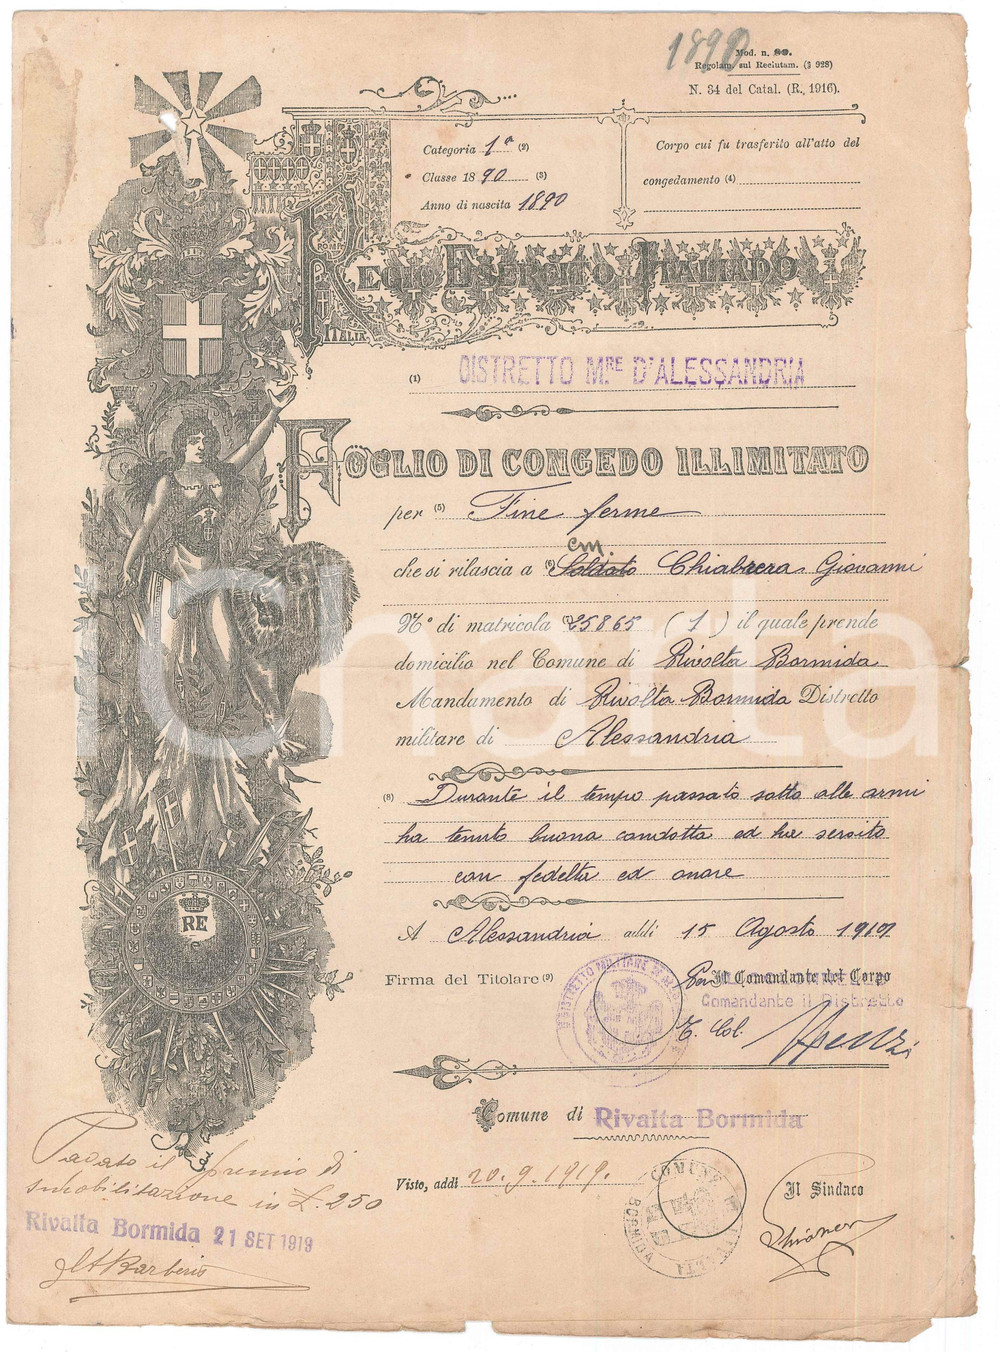 1890
Mod. n. 89.
Regolam. sul Reclutam. (§ 928)
N. 34 del Catal. (R. 1916).
Categoria 1ª (2)
Classe 1890 (3)
Anno di nascita 1890
Corpo cui fu trasferito all'atto del
congedamento (4)
ROMA
REGIO ESERCITO ITALIANO
ITALIA
(1) DISTRETTO M.RE D'ALESSANDRIA
FOGLIO DI CONGEDO ILLIMITATO
per (5) Fine ferme
cm.
che si rilascia a (6) Soldato Chiabrera Giovanni
N.° di matricola (7) 25865 (1) il quale prende
domicilio nel Comune di Rivolta Bormida
Mandamento di Rivolta Bormida Distretto
militare di Alessandria
(8) Durante il tempo passato sotto alle armi
ha tenuto buona condotta ed ha servito
con fedeltà ed onore
RE
A Alessandria addì 15 Agosto 1919
Firma del Titolare (9)
Per Il Comandante del Corpo
Comandante il Distretto
T. Col.
DISTRETTO MILITARE DI
Comune di Rivalta Bormida
Visto, addì 20.9.1919.
Il Sindaco
COMUNE DI RIVALTA BORMIDA
Pagato il premio di
smobilitazione in £. 250
Rivalta Bormida 21 SET 1919
Barberis